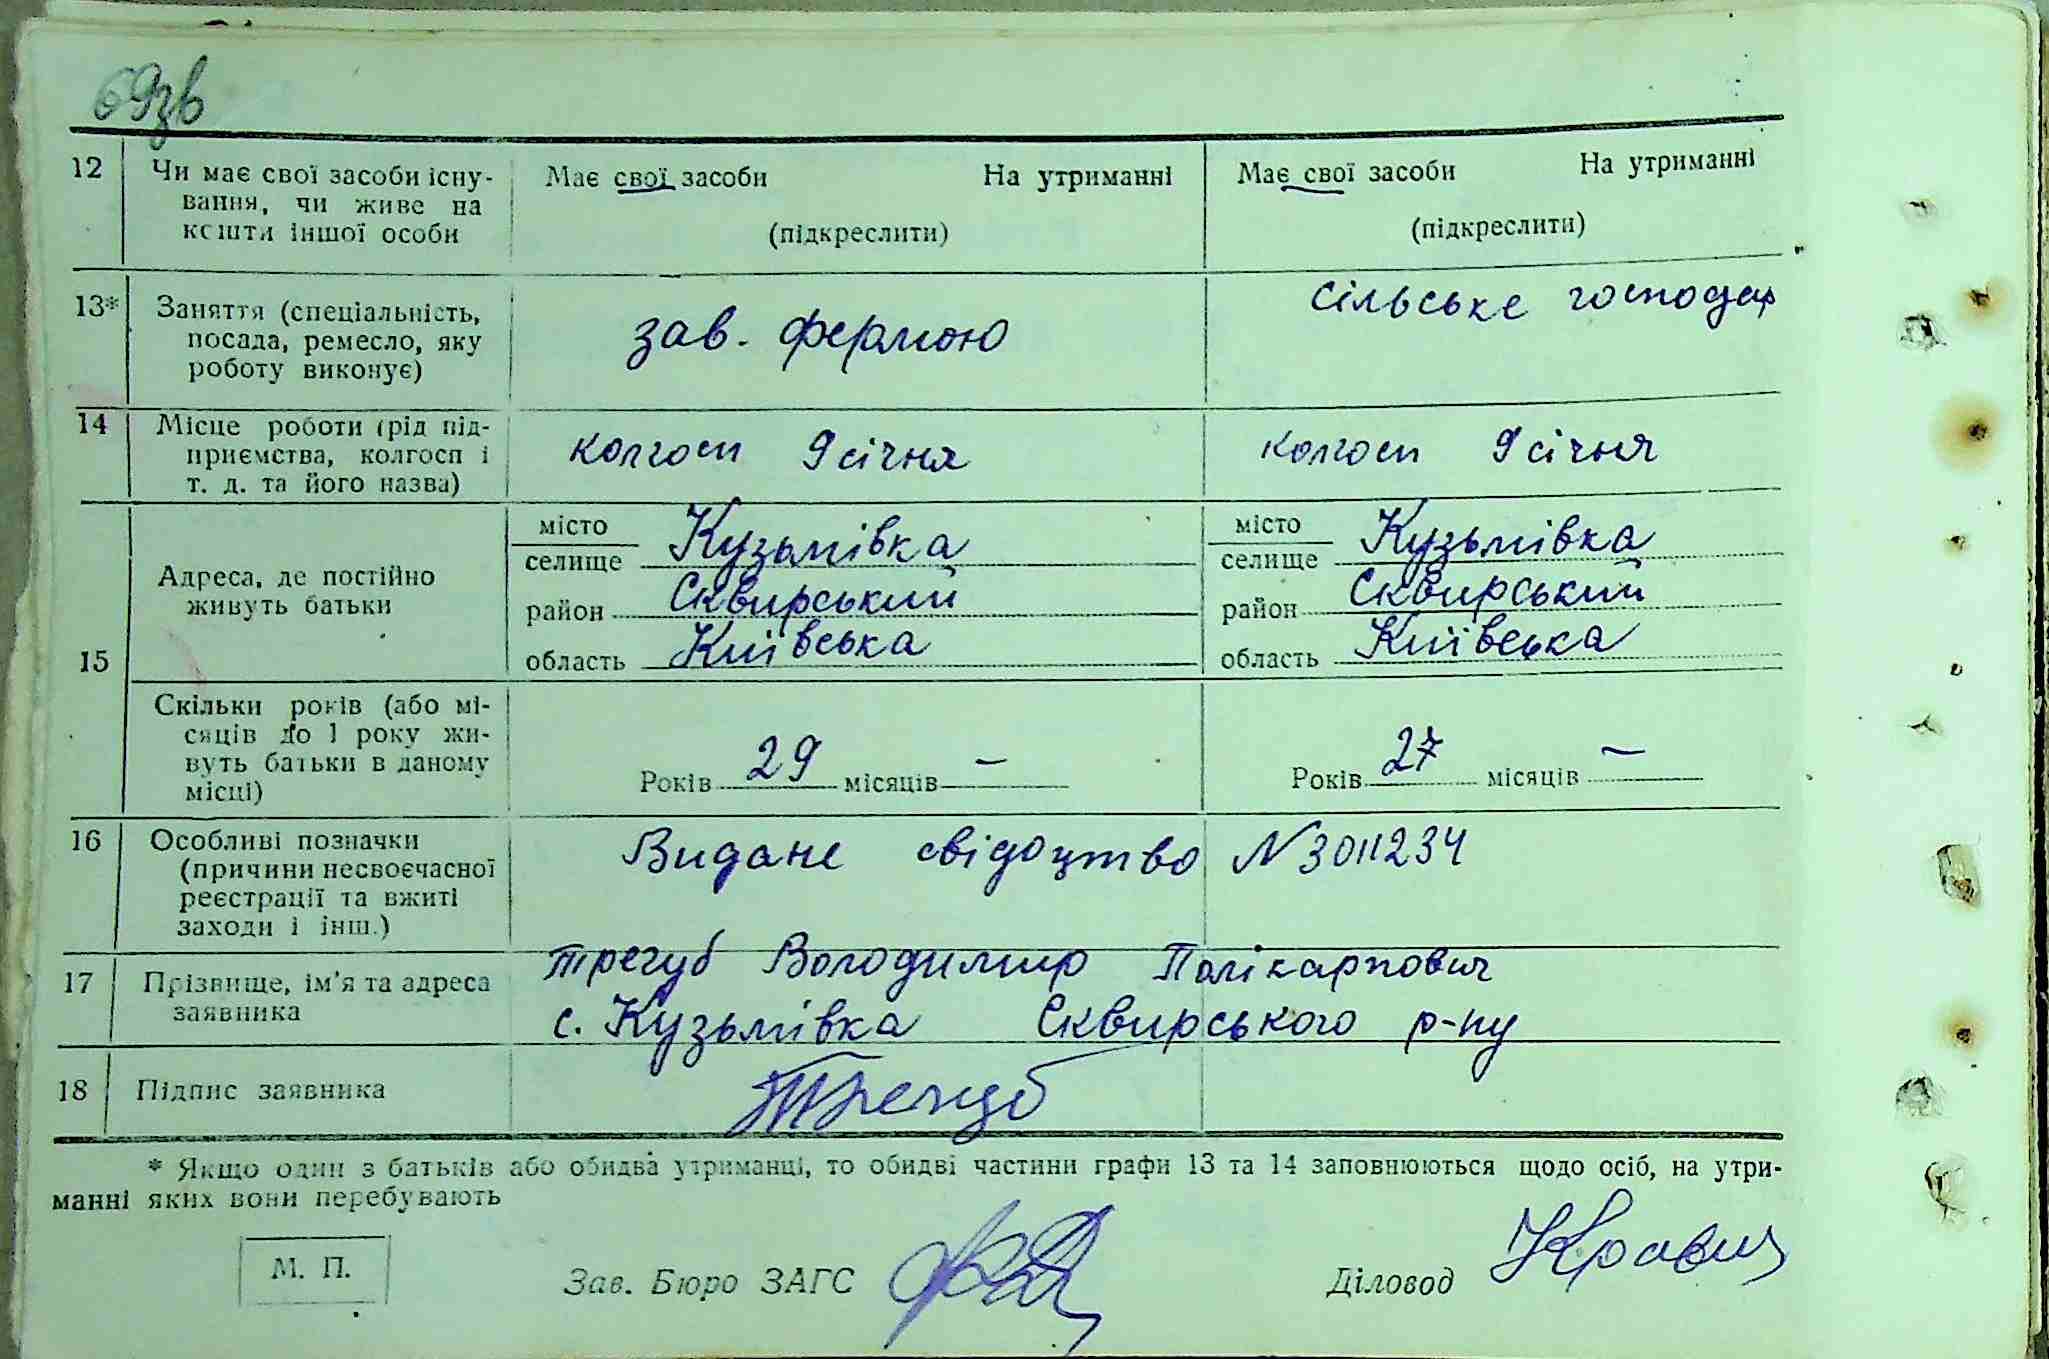 69зв
12 Чи має свої засоби існу- Має свої засоби На утриманні Має свої засоби На утриманні
вання, чи живе на
кошти іншої особи (підкреслити) (підкреслити)
13* Заняття (спеціальність, сільське господар
посада, ремесло, яку зав. фермою
роботу виконує)
14 Місце роботи (рід під-
приємства, колгосп і колгосп 9 січня колгосп 9 січня
т. д. та його назва)
місто Кузьмівка місто Кузьмівка
селище селище
15 Адреса, де постійно район Сквирський район Сквирський
живуть батьки
область Київська область Київська
Скільки років (або мі-
сяців до 1 року жи-
вуть батьки в даному Років 29 місяців – Років 27 місяців –
місці)
16 Особливі позначки Видане свідоцтво N 3011234
(причини несвоєчасної
реєстрації та вжиті
заходи і інш.)
17 Прізвище, ім'я та адреса Трегуб Володимир Полікарпович
заявника с. Кузьмівка Сквирського р-ну
18 Підпис заявника Трегуб
* Якщо один з батьків або обидва утриманці, то обидві частини графи 13 та 14 заповнюються щодо осіб, на утри-
манні яких вони перебувають
М. П. Зав. Бюро ЗАГС Діловод